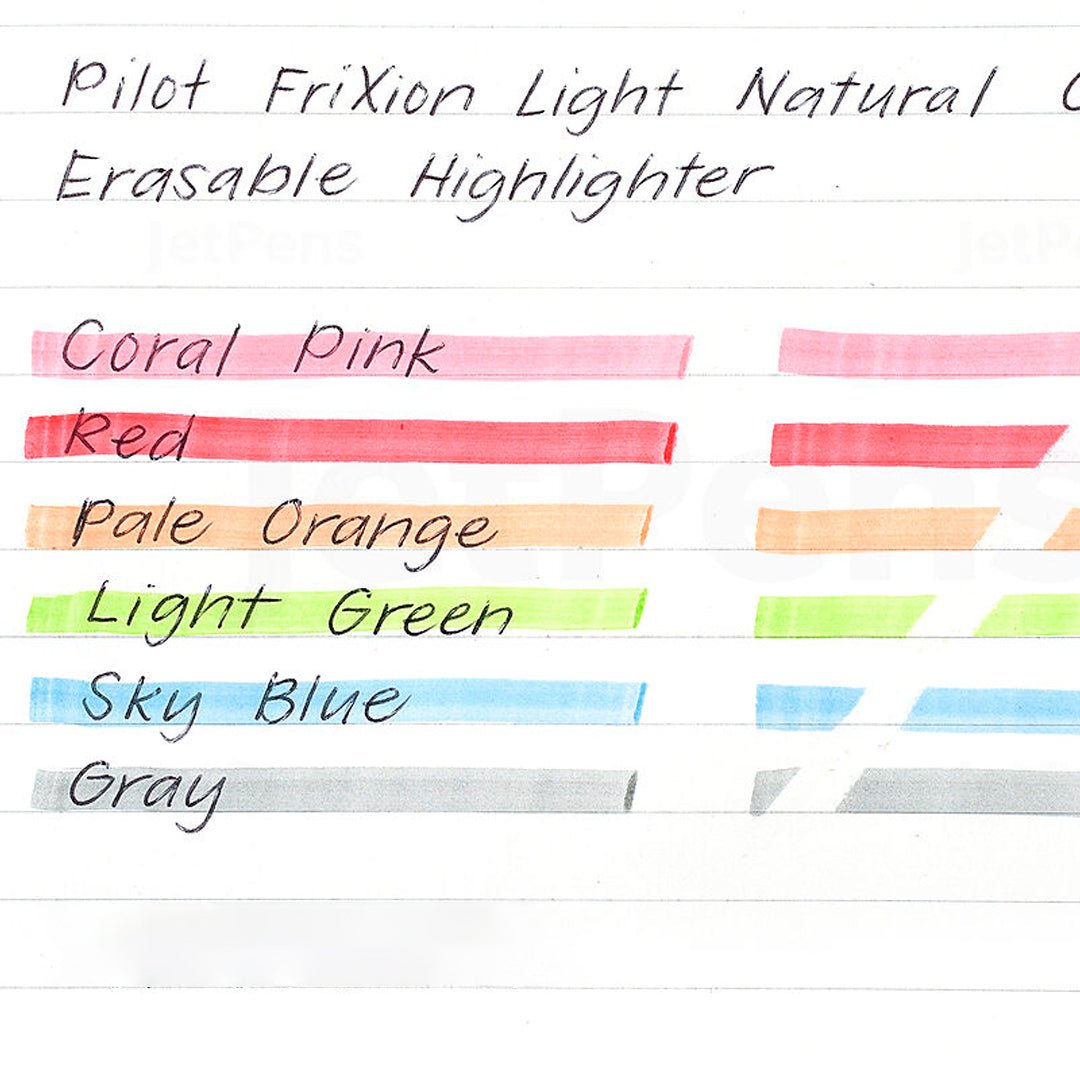 Pilot FriXion Light Natural C
Erasable Highlighter
JetPens JetPe
Coral Pink
Red
JetPens
Pale Orange
Light Green
Sky Blue
Gray